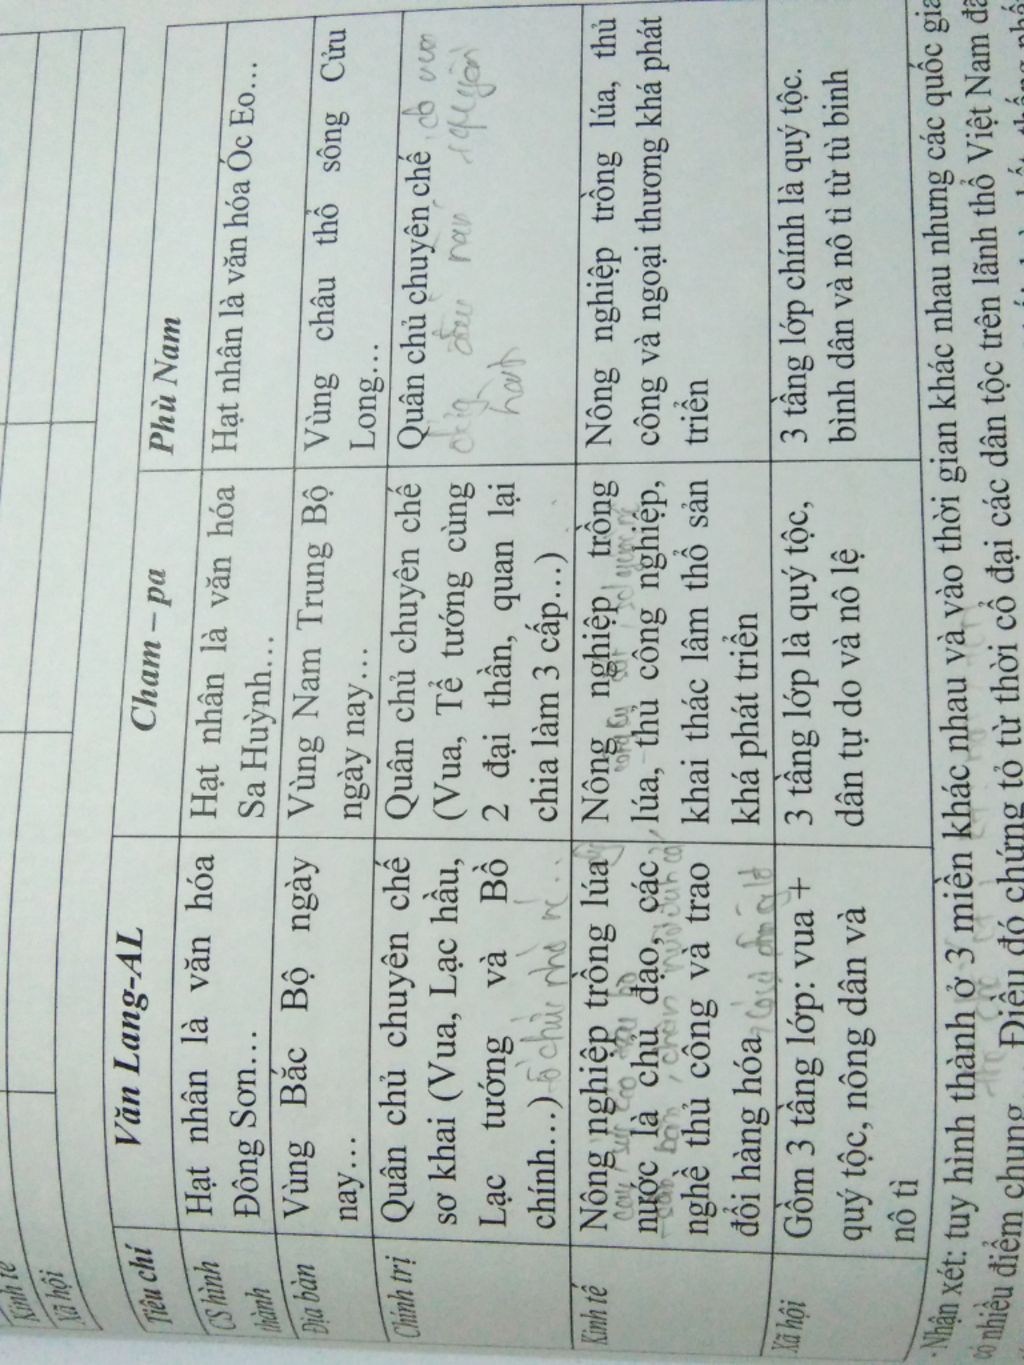 Kinh tế
Xã hội
Tiêu chí
Văn Lang-AL
Cham – pa
Phù Nam
CS hình
thành
Hạt nhân là văn hóa
Đông Sơn…
Hạt nhân là văn hóa
Sa Huỳnh…
Hạt nhân là văn hóa Óc Eo…
Địa bàn
Vùng Bắc Bộ ngày
nay…
Vùng Nam Trung Bộ
ngày nay…
Vùng châu thổ sông Cửu
Long…
Chính trị
Quân chủ chuyên chế
sơ khai (Vua, Lạc hầu,
Lạc tướng và Bồ
chính…)
tổ chức nhà n
Quân chủ chuyên chế
(Vua, Tể tướng cùng
2 đại thần, quan lại
chia làm 3 cấp…)
Quân chủ chuyên chế
Kinh tế
Nông nghiệp trồng lúa
nước là chủ đạo, các
nghề thủ công và trao
đổi hàng hóa
Nông nghiệp trồng
lúa, thủ công nghiệp,
khai thác lâm thổ sản
khá phát triển
Nông nghiệp trồng lúa, thủ
công và ngoại thương khá phát
triển
Xã hội
Gồm 3 tầng lớp: vua +
quý tộc, nông dân và
nô tì
3 tầng lớp là quý tộc,
dân tự do và nô lệ
3 tầng lớp chính là quý tộc.
bình dân và nô tì từ tù binh
Nhận xét: tuy hình thành ở 3 miền khác nhau và vào thời gian khác nhau nhưng các quốc gia
có nhiều điểm chung … Điều đó chứng tỏ từ thời cổ đại các dân tộc trên lãnh thổ Việt Nam đã